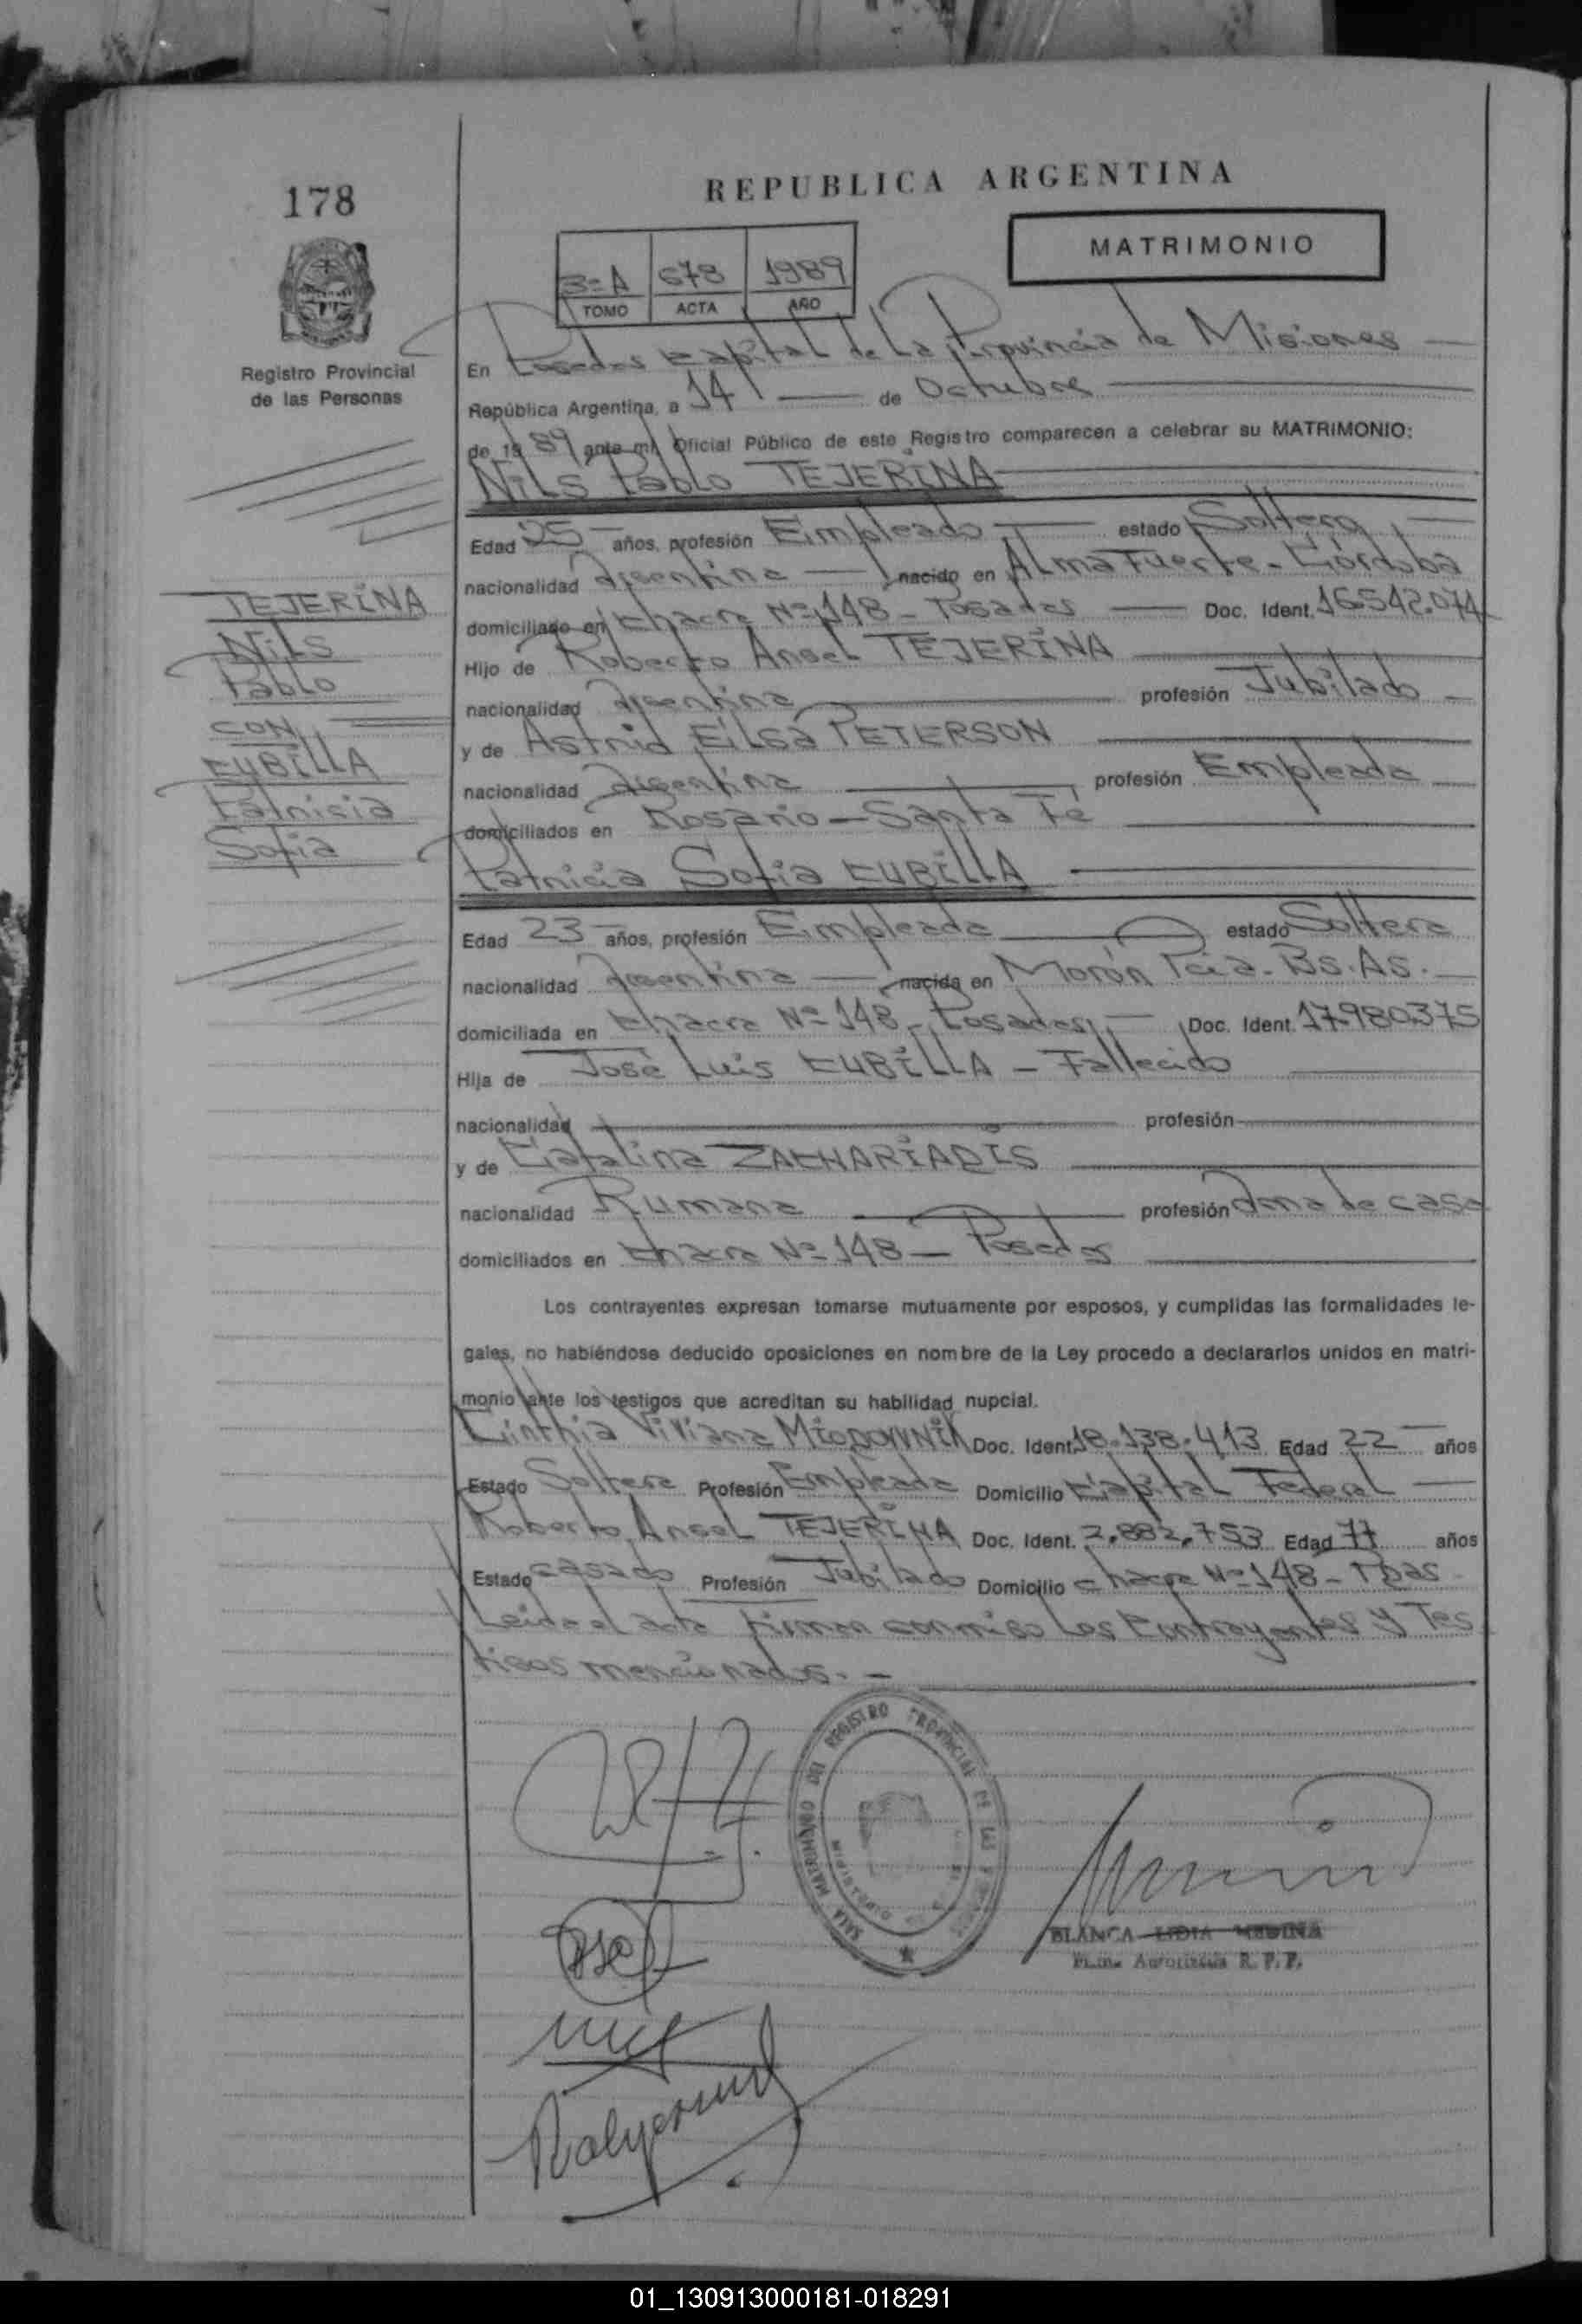 178
REPUBLICA ARGENTINA
MATRIMONIO
3=A 678 1989
TOMO ACTA AÑO
Registro Provincial
de las Personas
En Posadas Capital de la Provincia de Misiones
República Argentina, a 14 de Octubre
de 19 89 ante mi, Oficial Público de este Registro comparecen a celebrar su MATRIMONIO:
Nils Pablo TEJERINA
Edad 25 años, profesión Empleado estado Soltero
nacionalidad Argentina nacido en Almafuerte - Córdoba
domiciliado en Chacra Nº 148 - Posadas Doc. Ident. 16.542.074
Hijo de Roberto Angel TEJERINA
nacionalidad Argentina profesión Jubilado
y de Astrid Elsa PETERSON
nacionalidad Argentina profesión Empleada
domiciliados en Rosario - Santa Fé
TEJERINA
Nils
Pablo
CON
CUBILLA
Patricia
Sofia
Patricia Sofia CUBILLA
Edad 23 años, profesión Empleada estado Soltera
nacionalidad Argentina nacida en Morón Pcia. Bs. As.
domiciliada en Chacra Nº 148 - Posadas Doc. Ident. 17.980.375
Hija de José Luis CUBILLA - Fallecido
nacionalidad profesión
y de Catalina ZACHARIADIS
nacionalidad Rumana profesión Ama de casa
domiciliados en Chacra Nº 148 - Posadas
Los contrayentes expresan tomarse mutuamente por esposos, y cumplidas las formalidades le-
gales, no habiéndose deducido oposiciones en nombre de la Ley procedo a declararlos unidos en matri-
monio ante los testigos que acreditan su habilidad nupcial.
Cinthia Viviana MIODOWNIK Doc. Ident. 18.138.413 Edad 22 años
Estado Soltera Profesión Empleada Domicilio Capital Federal
Roberto Angel TEJERINA Doc. Ident. 2.882.753 Edad 77 años
Estado casado Profesión Jubilado Domicilio chacra Nº 148 - Pdas.
Leida el acta firman conmigo los Contrayentes y Tes
tigos mencionados. -
REGISTRO PROVINCIAL DE LAS
SALA MATRIMONIO
BLANCA LIDIA MEDINA
Firma Autorizada R. P. P.
01_130913000181-018291